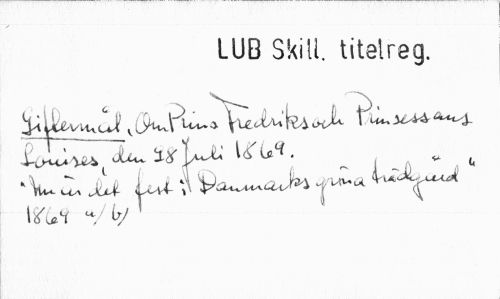 LUB Skill. titelreg.
Giftermål, Om Prins Fredriks och Prinsessans
Louises, den 28 Juli 1869.
"Nu är det fest i Danmarks gröna trädgård"
1869 a/ b/